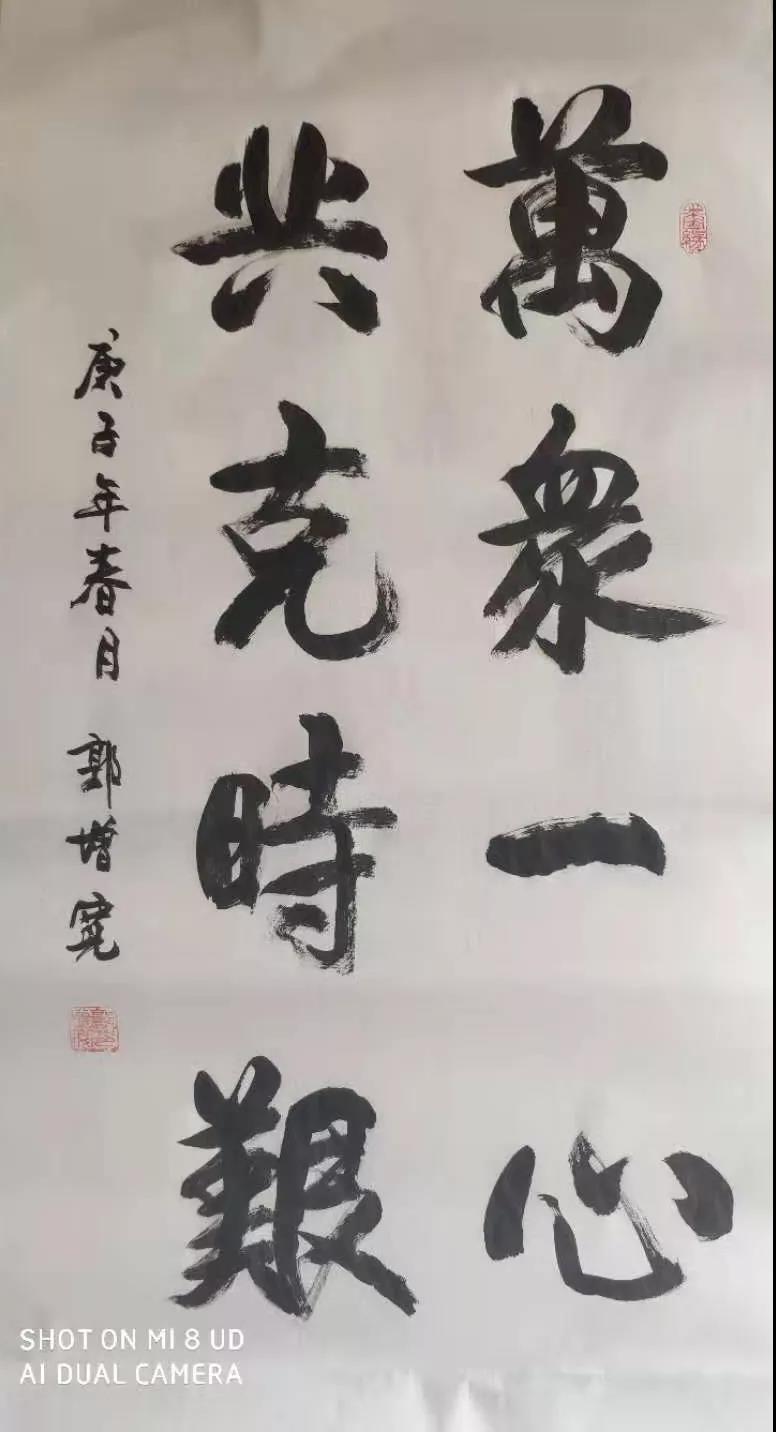 萬衆一心
共克時艱
庚子年春月 郭增寬
SHOT ON MI 8 UD
AI DUAL CAMERA